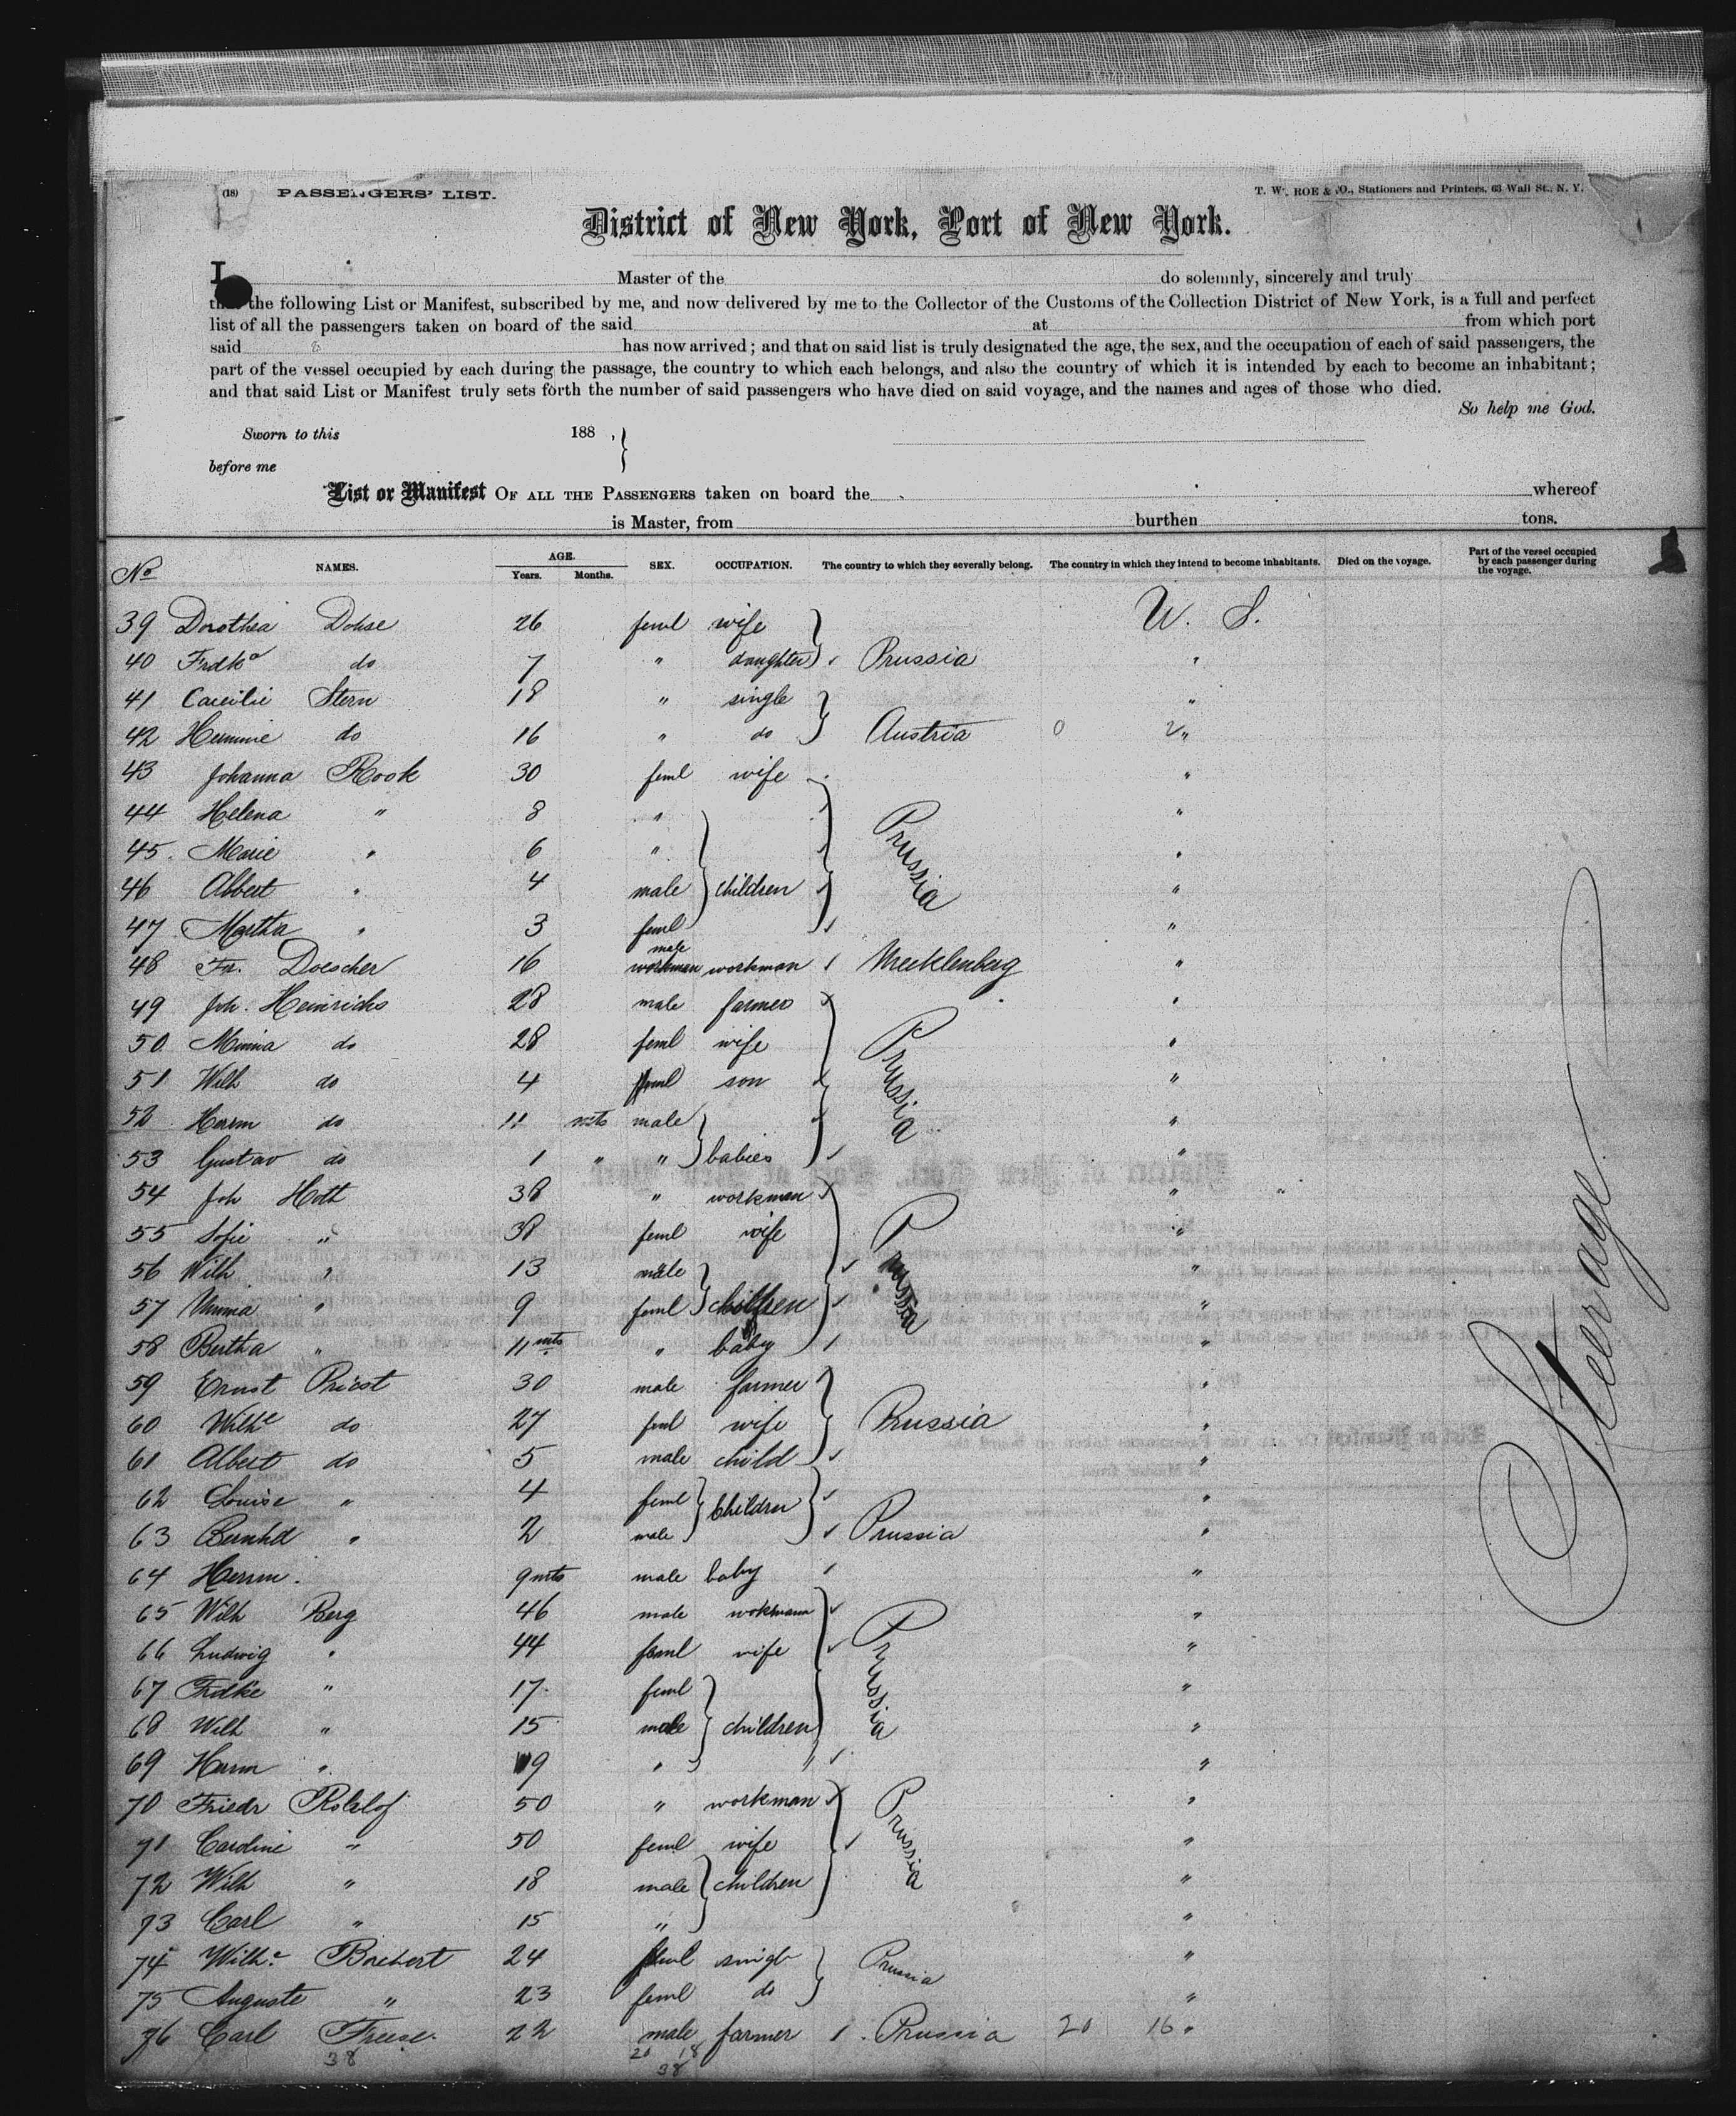 (18) PASSENGERS' LIST.
T. W. ROE & CO., Stationers and Printers, 63 Wall St., N. Y.
District of New York, Port of New York.
I Master of the do solemnly, sincerely and truly
that the following List or Manifest, subscribed by me, and now delivered by me to the Collector of the Customs of the Collection District of New York, is a full and perfect
list of all the passengers taken on board of the said at from which port
said has now arrived; and that on said list is truly designated the age, the sex, and the occupation of each of said passengers, the
part of the vessel occupied by each during the passage, the country to which each belongs, and also the country of which it is intended by each to become an inhabitant;
and that said List or Manifest truly sets forth the number of said passengers who have died on said voyage, and the names and ages of those who died.
So help me God.
Sworn to this 188 ,
before me
List or Manifest OF ALL THE PASSENGERS taken on board the whereof
is Master, from burthen tons.
No NAMES. AGE. Years. Months. SEX. OCCUPATION. The country to which they severally belong. The country in which they intend to become inhabitants. Died on the voyage. Part of the vessel occupied by each passenger during the voyage.
39 Dorothea Dohse 26 feml wife U. S.
40 Frdka do 7 " daughter Prussia "
41 Caecilie Stern 18 " single "
42 do 16 " do Austria 0 2 "
43 Johanna Rook 30 feml wife "
44 Helena " 8 " "
45 Marie " 6 " Prussia "
46 Albert " 4 male children "
47 Martha " 3 feml "
48 Fr. Doescher 16 male workman workman Mecklenberg "
49 Joh. Heinrichs 28 male farmer "
50 Minna do 28 feml wife "
51 Wilh do 4 son Prussia "
52 Herm do 11 mts male "
53 Gustav do 1 " " babies "
54 Joh Hott 38 " workman " "
55 Sofie " 38 feml wife "
56 Wilh " 13 male Prussia "
57 " 9 feml children "
58 Bertha " 11 mts " baby "
59 Ernst Priest 30 male farmer "
60 Wilhe do 27 feml wife Prussia "
61 Albert do 5 male child "
62 Louise " 4 feml children "
63 Bernhd " 2 male Prussia "
64 Herm. 9 mts male baby "
65 Wilh Berg 46 male wokmann "
66 Ludwig " 44 feml wife "
67 Frdke " 17 feml Prussia "
68 Wilh " 15 male children "
69 Herm " 9 " "
70 Friedr 50 " workman "
71 Caroline " 50 feml wife Prussia "
72 Wilh " 18 male children "
73 Carl " 15 " "
74 Wilhe 24 feml Prussia "
75 Auguste " 23 feml do "
76 Carl Freese 22 male farmer Prussia 20 16 "
38 20 18
38
Steerage